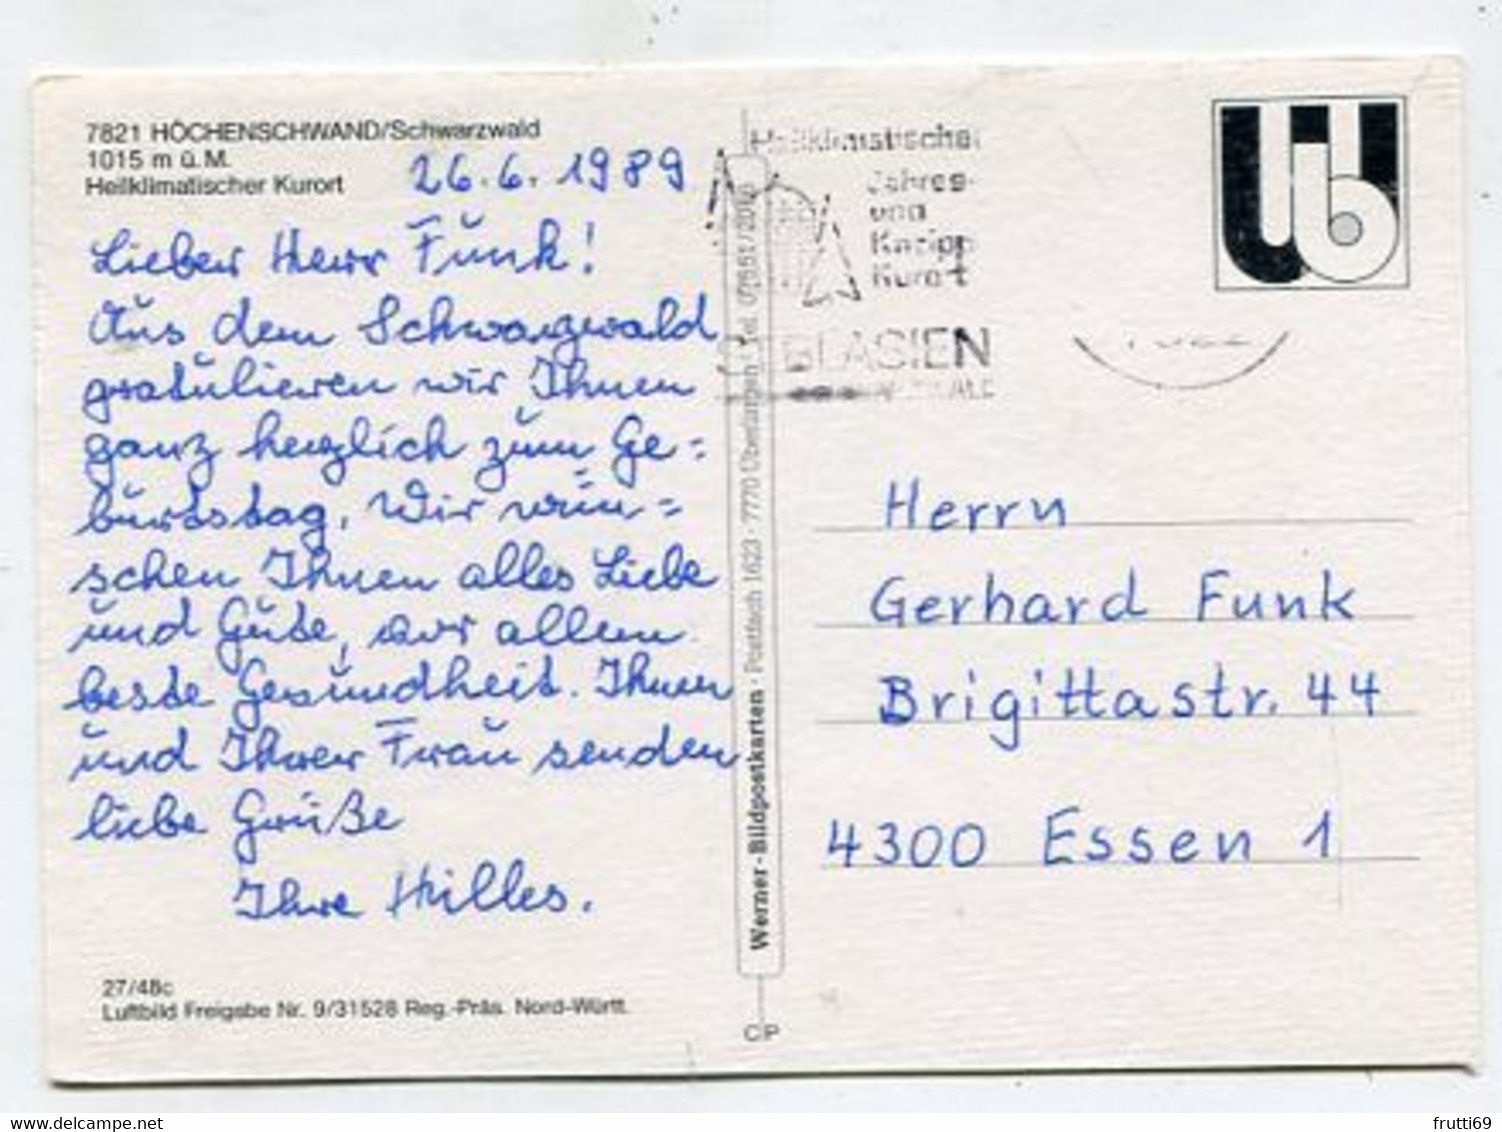 7821 HÖCHENSCHWAND/Schwarzwald
1015 m ü. M.
Heilklimatischer Kurort
26.6.1989
Lieber Herr Funk!
Aus dem Schwarzwald
gratulieren wir Ihnen
ganz herzlich zum Ge=
burtstag. Wir wün=
schen Ihnen alles Liebe
und Gute, vor allem
beste Gesundheit. Ihnen
und Ihrer Frau senden
liebe Grüße
Ihre Hilles.
27/48c
Luftbild Freigabe Nr. 9/31528 Reg.-Präs. Nord-Württ.
Werner-Bildpostkarten · Postfach 1623 · 7770 Überlingen · Tel. 07551/2016
CP
Heilklimatischer
Jahres-
und
Kneipp
Kurort
BLASIEN
Ub
Herrn
Gerhard Funk
Brigittastr. 44
4300 Essen 1
frutti69